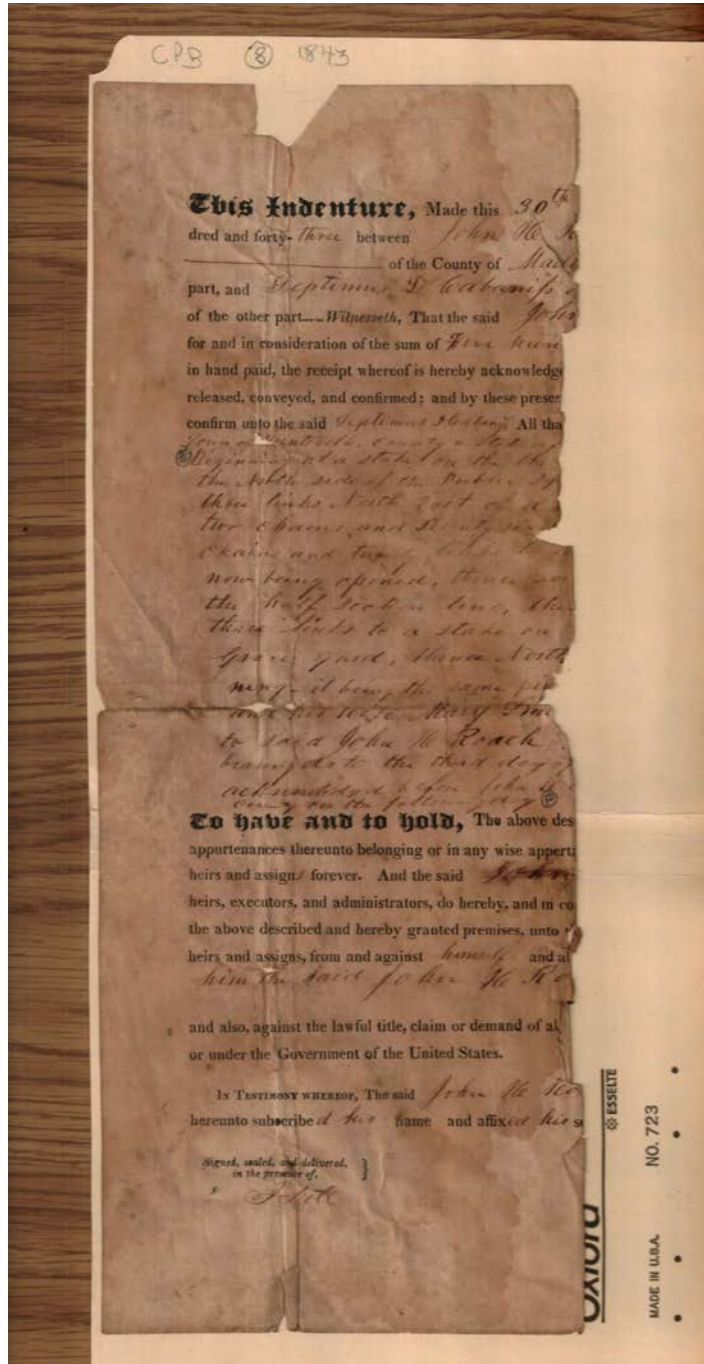 CPB 8 1843
This Indenture, Made this 30th
dred and forty-three between John H Ro
of the County of Madi
part, and Septimus D Cabaniss
of the other part.....Witnesseth, That the said John
for and in consideration of the sum of Five hun
in hand paid, the receipt whereof is hereby acknowledge
released, conveyed, and confirmed: and by these presen
confirm unto the said Septimus D Cabaniss All tha
Town of Huntsville, County & State of
Beginning at a stake on the
the North side of the Public Sq
three links North East of a
two chains and Seventy
chains and twenty links to
now being opened, thence
the half section line, the
three links to a stake on
Grave yard, thence North
ning- it being the same
and his wife Mary
to said John H Roach
bearing date the third day of
acknowledged before John
County on the following day
To have and to hold, The above des
appurtenances thereunto belonging or in any wise apperta
heirs and assigns forever. And the said John
heirs, executors, and administrators, do hereby, and in co
the above described and hereby granted premises, unto
heirs and assigns, from and against himself and al
him the said John H Ro
and also, against the lawful title, claim or demand of al
or under the Government of the United States.
In Testimony whereof, The said John H Ro
hereunto subscribed his name and affixed his s
Signed, sealed, and delivered,
in the presence of,
Oxford
ESSELTE
MADE IN U.S.A. NO. 723